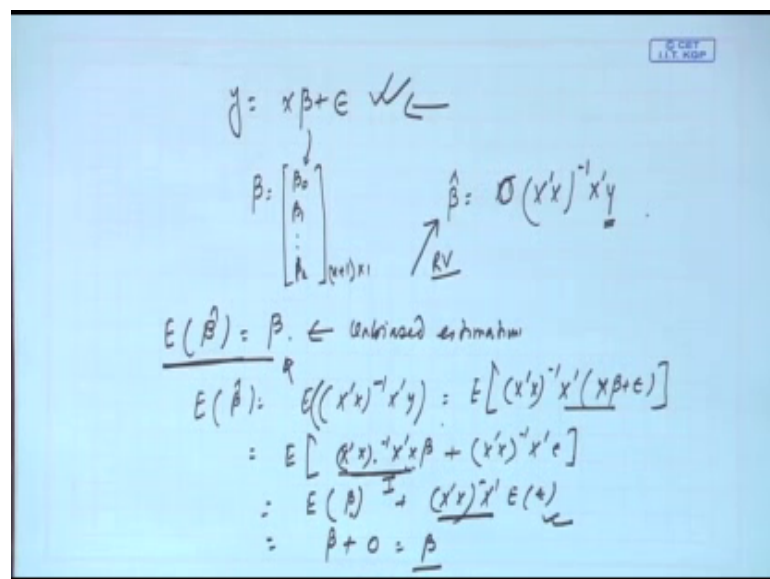 © CET
I.I.T. KGP
y = xβ + ϵ
β = [β₀ β₁ ⋮ βₖ](k+1)×1
β̂ = (x'x)⁻¹x'y
RV
E(β̂) = β. ← Unbiased estimation
E(β̂) = E((x'x)⁻¹x'y) = E[(x'x)⁻¹x'(xβ+ϵ)]
= E[(x'x)⁻¹x'xβ + (x'x)⁻¹x'ϵ]
I
= E(β) + (x'x)⁻¹x' E(ϵ)
= β + 0 = β